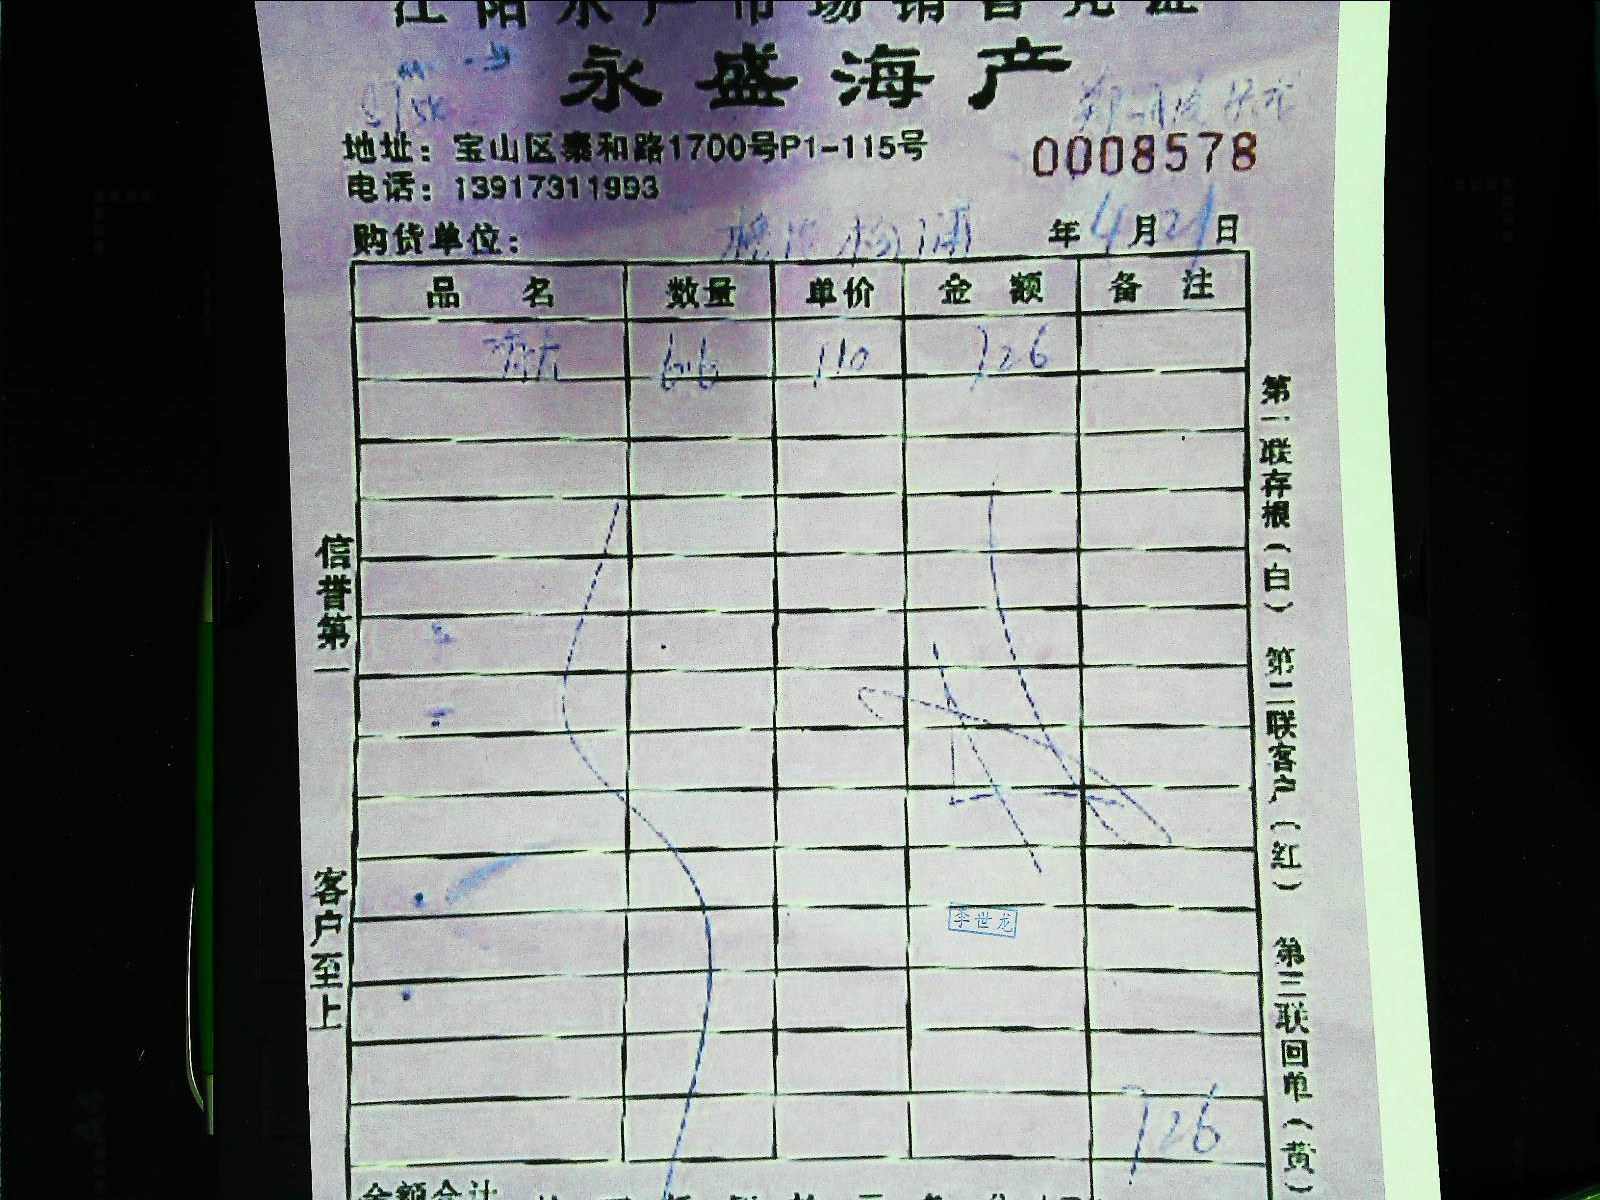 江阳水产市场销售凭证
永盛海产
地址：宝山区泰和路1700号P1-115号
0008578
电话：13917311993
购货单位：
年4月21日
品名 数量 单价 金额 备注
6.6 110 726
信誉第一
客户至上
李世龙
726
金额合计
第一联存根（白） 第二联客户（红） 第三联回单（黄）